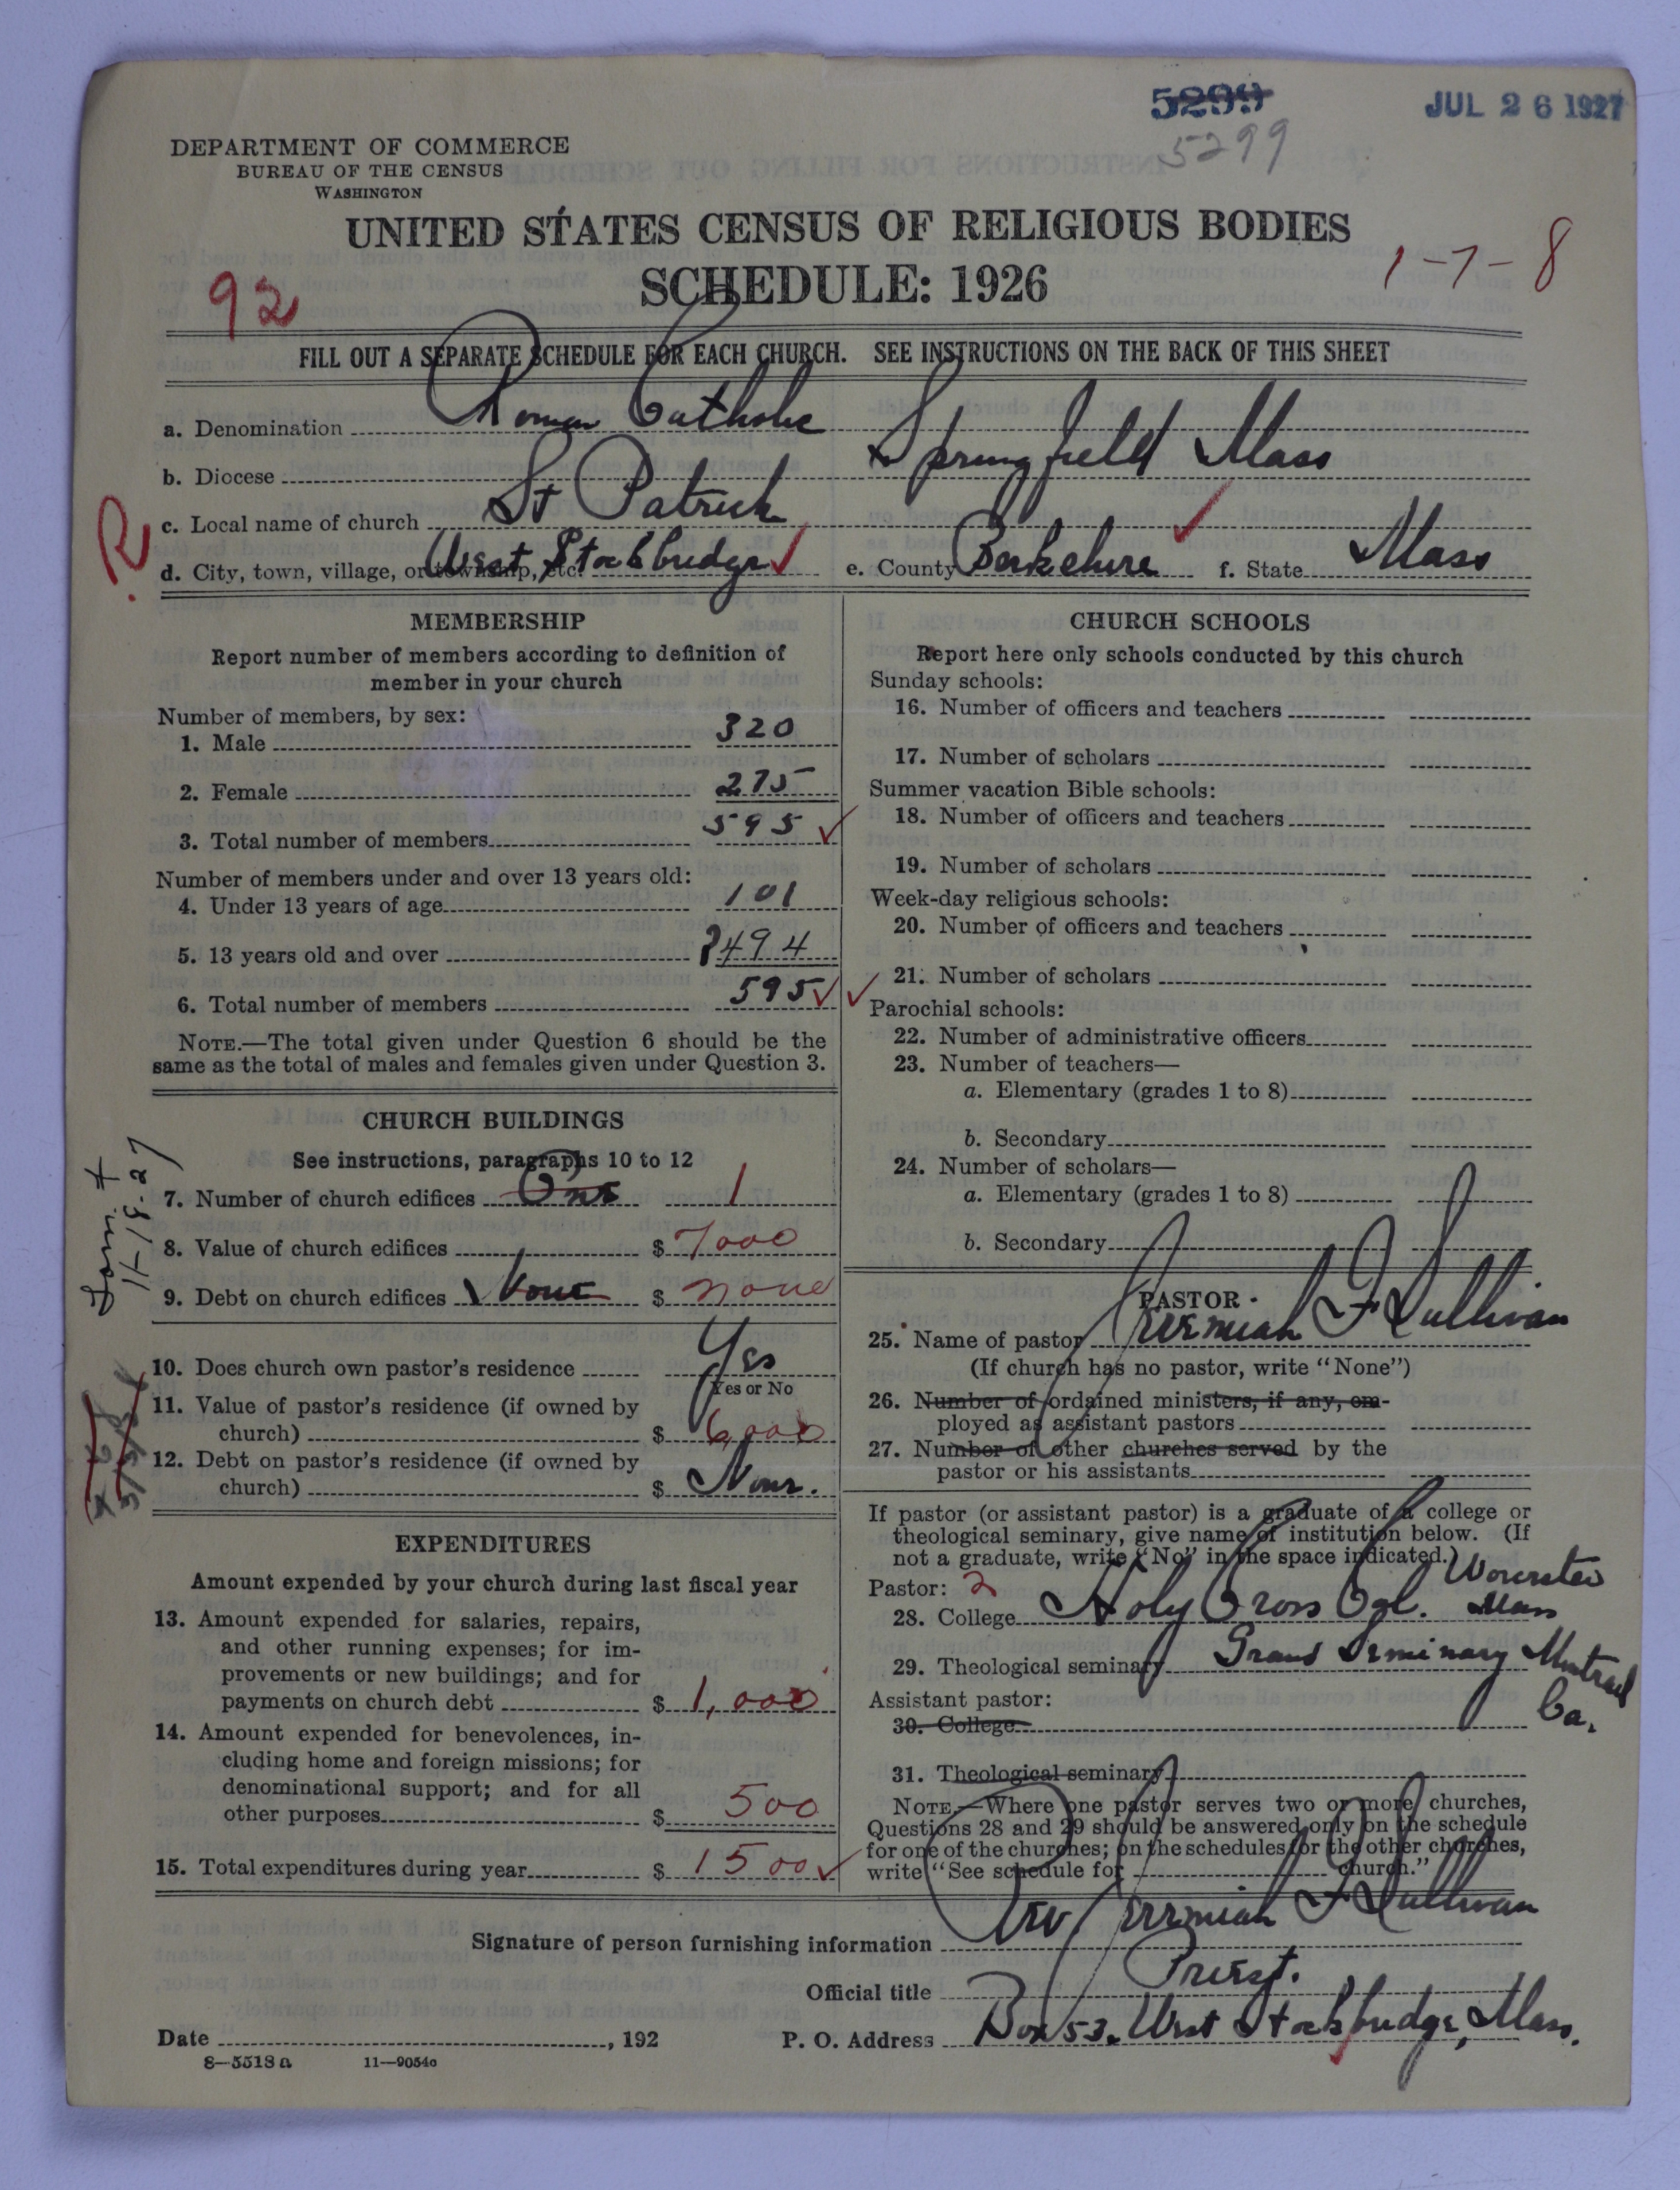 5299
JUL 26 1927
5299
DEPARTMENT OF COMMERCE
BUREAU OF THE CENSUS
WASHINGTON
UNITED STATES CENSUS OF RELIGIOUS BODIES
SCHEDULE: 1926
1-7-8
92
FILL OUT A SEPARATE SCHEDULE FOR EACH CHURCH. SEE INSTRUCTIONS ON THE BACK OF THIS SHEET
a. Denomination Roman Catholic
b. Diocese Springfield Mass
R
c. Local name of church St Patrick
d. City, town, village, or township, etc. West Stockbridge e. County Berkshire f. State Mass
MEMBERSHIP
Report number of members according to definition of
member in your church
Number of members, by sex:
1. Male 320
2. Female 275
3. Total number of members 595
Number of members under and over 13 years old:
4. Under 13 years of age 101
5. 13 years old and over 494
6. Total number of members 595
NOTE.—The total given under Question 6 should be the
same as the total of males and females given under Question 3.
CHURCH BUILDINGS
See instructions, paragraphs 10 to 12
7. Number of church edifices One 1
8. Value of church edifices $ 7000
9. Debt on church edifices None $ none
11-18-27
10. Does church own pastor's residence Yes
Yes or No
11. Value of pastor's residence (if owned by
church) $ 6,000
12. Debt on pastor's residence (if owned by
church) $ None.
EXPENDITURES
Amount expended by your church during last fiscal year
13. Amount expended for salaries, repairs,
and other running expenses; for im-
provements or new buildings; and for
payments on church debt $ 1,000
14. Amount expended for benevolences, in-
cluding home and foreign missions; for
denominational support; and for all
other purposes $ 500
15. Total expenditures during year $ 1500
CHURCH SCHOOLS
Report here only schools conducted by this church
Sunday schools:
16. Number of officers and teachers
17. Number of scholars
Summer vacation Bible schools:
18. Number of officers and teachers
19. Number of scholars
Week-day religious schools:
20. Number of officers and teachers
21. Number of scholars
Parochial schools:
22. Number of administrative officers
23. Number of teachers—
a. Elementary (grades 1 to 8)
b. Secondary
24. Number of scholars—
a. Elementary (grades 1 to 8)
b. Secondary
PASTOR
25. Name of pastor Jeremiah F Sullivan
(If church has no pastor, write "None")
26. Number of ordained ministers, if any, em-
ployed as assistant pastors
27. Number of other churches served by the
pastor or his assistants
If pastor (or assistant pastor) is a graduate of a college or
theological seminary, give name of institution below. (If
not a graduate, write "No" in the space indicated.)
Pastor: 2
28. College Holy Cross Col. Worcester Mass
29. Theological seminary Grand Seminary Montreal
Ca.
Assistant pastor:
30. College
31. Theological seminary
NOTE.—Where one pastor serves two or more churches,
Questions 28 and 29 should be answered only on the schedule
for one of the churches; on the schedules for the other churches,
write "See schedule for church."
Signature of person furnishing information Rev Jeremiah F Sullivan
Official title Priest.
Date , 192 P. O. Address Box 53. West Stockbridge, Mass.
8-5518a 11-9054c